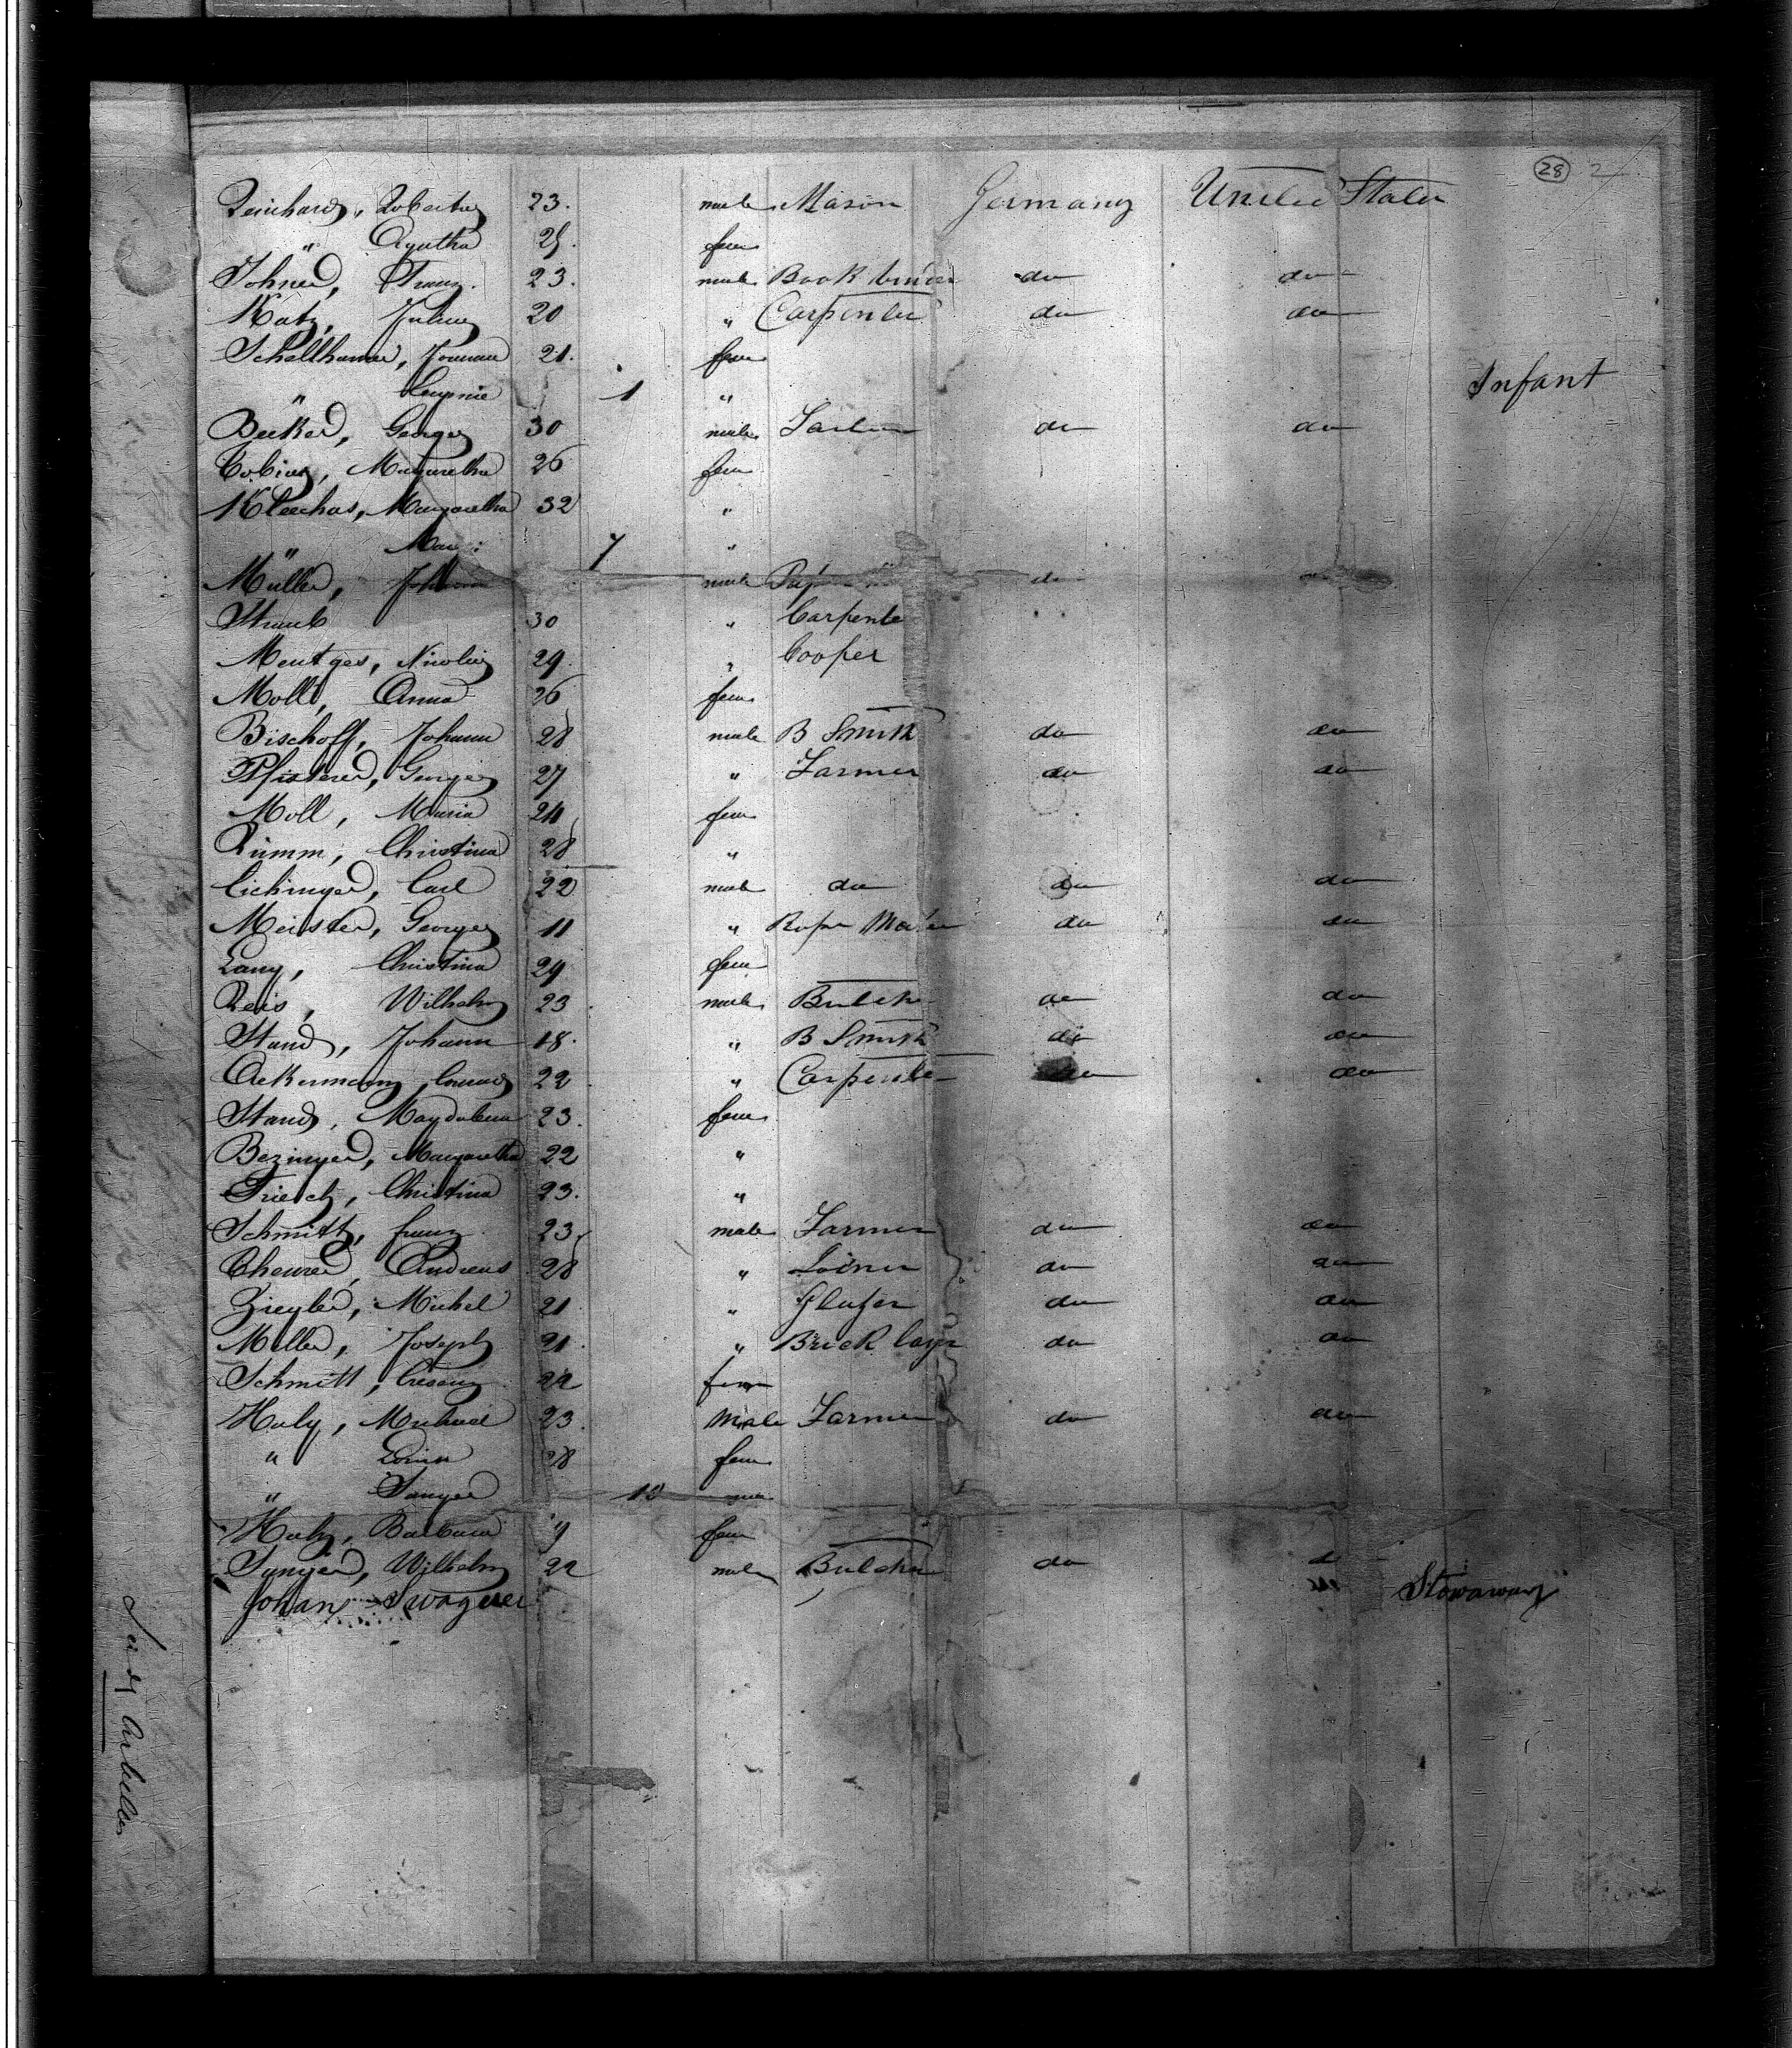 28 2
Reinhard, Robertus 23. male Mason Germany United States
" Agatha 25. fem
Johner, Franz. 23. male Book binder do do
Katz, Julius 20 " Carpenter do do
Schellhamer, 21. fem
" Eugenie 1 " Infant
Becker, George 30 male do do
Tobias, Margaretha 26 fem
Kleechas, Margaretha 32 "
" 7 "
Müller, Johann male do
Straub 30 " Carpente
Mentges, Nicolas 29. " Cooper
Moll, Anna 26 fem
Bischoff, Johann 28 male B Smith do do
Pfisterer, George 27 " Farmer do do
Moll, Maria 24 fem
Rümm, Christina 28 "
Eichinger, Carl 22 male do do do
Meister, George 11 " Rope Maker do do
Lang, Christina 29 fem
Reis, Wilhelm 23 male Butcher do do
Stand, Johann 18. " B Smith do do
Ackermann, Conrad 22 " Carpenter do do
Stand, Magdalena 23. fem
Bezinger, Margaretha 22 "
Triesch, Christina 23. "
Schmitt, franz 23. male Farmer do do
Theurer, Andreas 28 " Joiner do do
Ziegler, Michel 21 " do do
Meller, Joseph 21. " Brick layer do do
Schmitt, 22 fem
Huly, Michael 23. Male Farmer do do
" Louise 28 fem
" 10
Huly, Barbara 9 fem
Sanger, Wilhelm 22 male Butcher do d
Johan Swagerer Stowaway